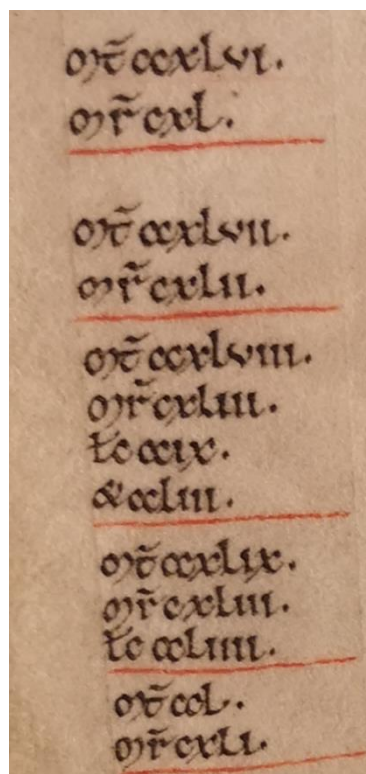 mt̄ ccxlvi.
mr̄ cxl.
mt̄ ccxlvii.
mr̄ cxlii.
mt̄ ccxlviii.
mr̄ cxliii.
łc ccix.
& ccliii.
mt̄ ccxlix.
mr̄ cxliii.
łc ccliiii.
mt̄ ccl.
mr̄ cxli.